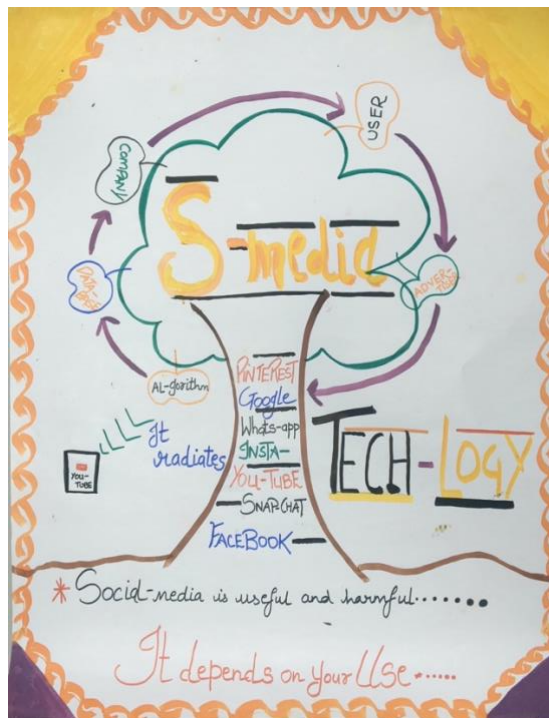 USER
COMPANY
S-media
DATA BASE
ADVER-
AL-gorithm
PiNTEREST
Google
Whats-app
INSTA-
YOU-TUBE
SNAPCHAT
FACEBOOK
It
radiates
YOU-
TUBE
TECH-LOGY
* Social-media is useful and harmful........
It depends on your Use......